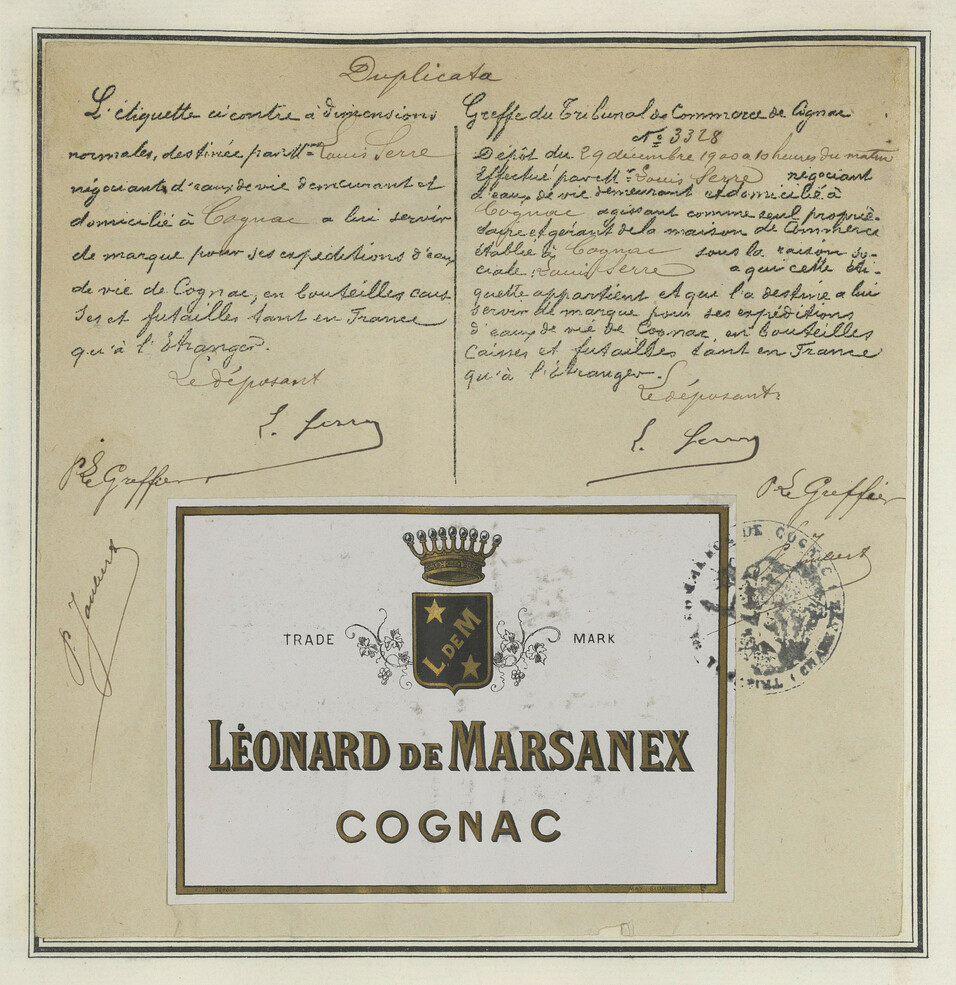 Duplicata
L'étiquette ci contre à dimensions
normales, destinée par Mr Louis Serre
négociant d'eaux de vie demeurant et
domicilié à Cognac a lui servir
de marque pour ses expéditions d'eaux
de vie de Cognac, en bouteilles cais
ses et futailles tant en France
qu'à l'Étranger.
Le déposant
L. Serre
Pr Le Greffier
P. Joubert
Greffe du Tribunal de Commerce de Cognac
No 3328
Dépôt du 29 décembre 1900 a 10 heures du matin
Effectué par Mr Louis Serre négociant
d'eaux de vie demeurant et domicilié à
Cognac agissant comme seul proprié-
taire et gérant de la maison de Commerce
établie à Cognac sous la raison so-
ciale Louis Serre a qui cette éti-
quette appartient et qui l'a destinée a lui
servir de marque pour ses expéditions
d'eaux de vie de Cognac en bouteilles
Caisses et futailles tant en France
qu'à l'étranger.
Le déposant
L. Serre
Pr Le Greffier
P. Joubert
L. DE M
TRADE MARK
LÉONARD DE MARSANEX
COGNAC
DE COGNAC